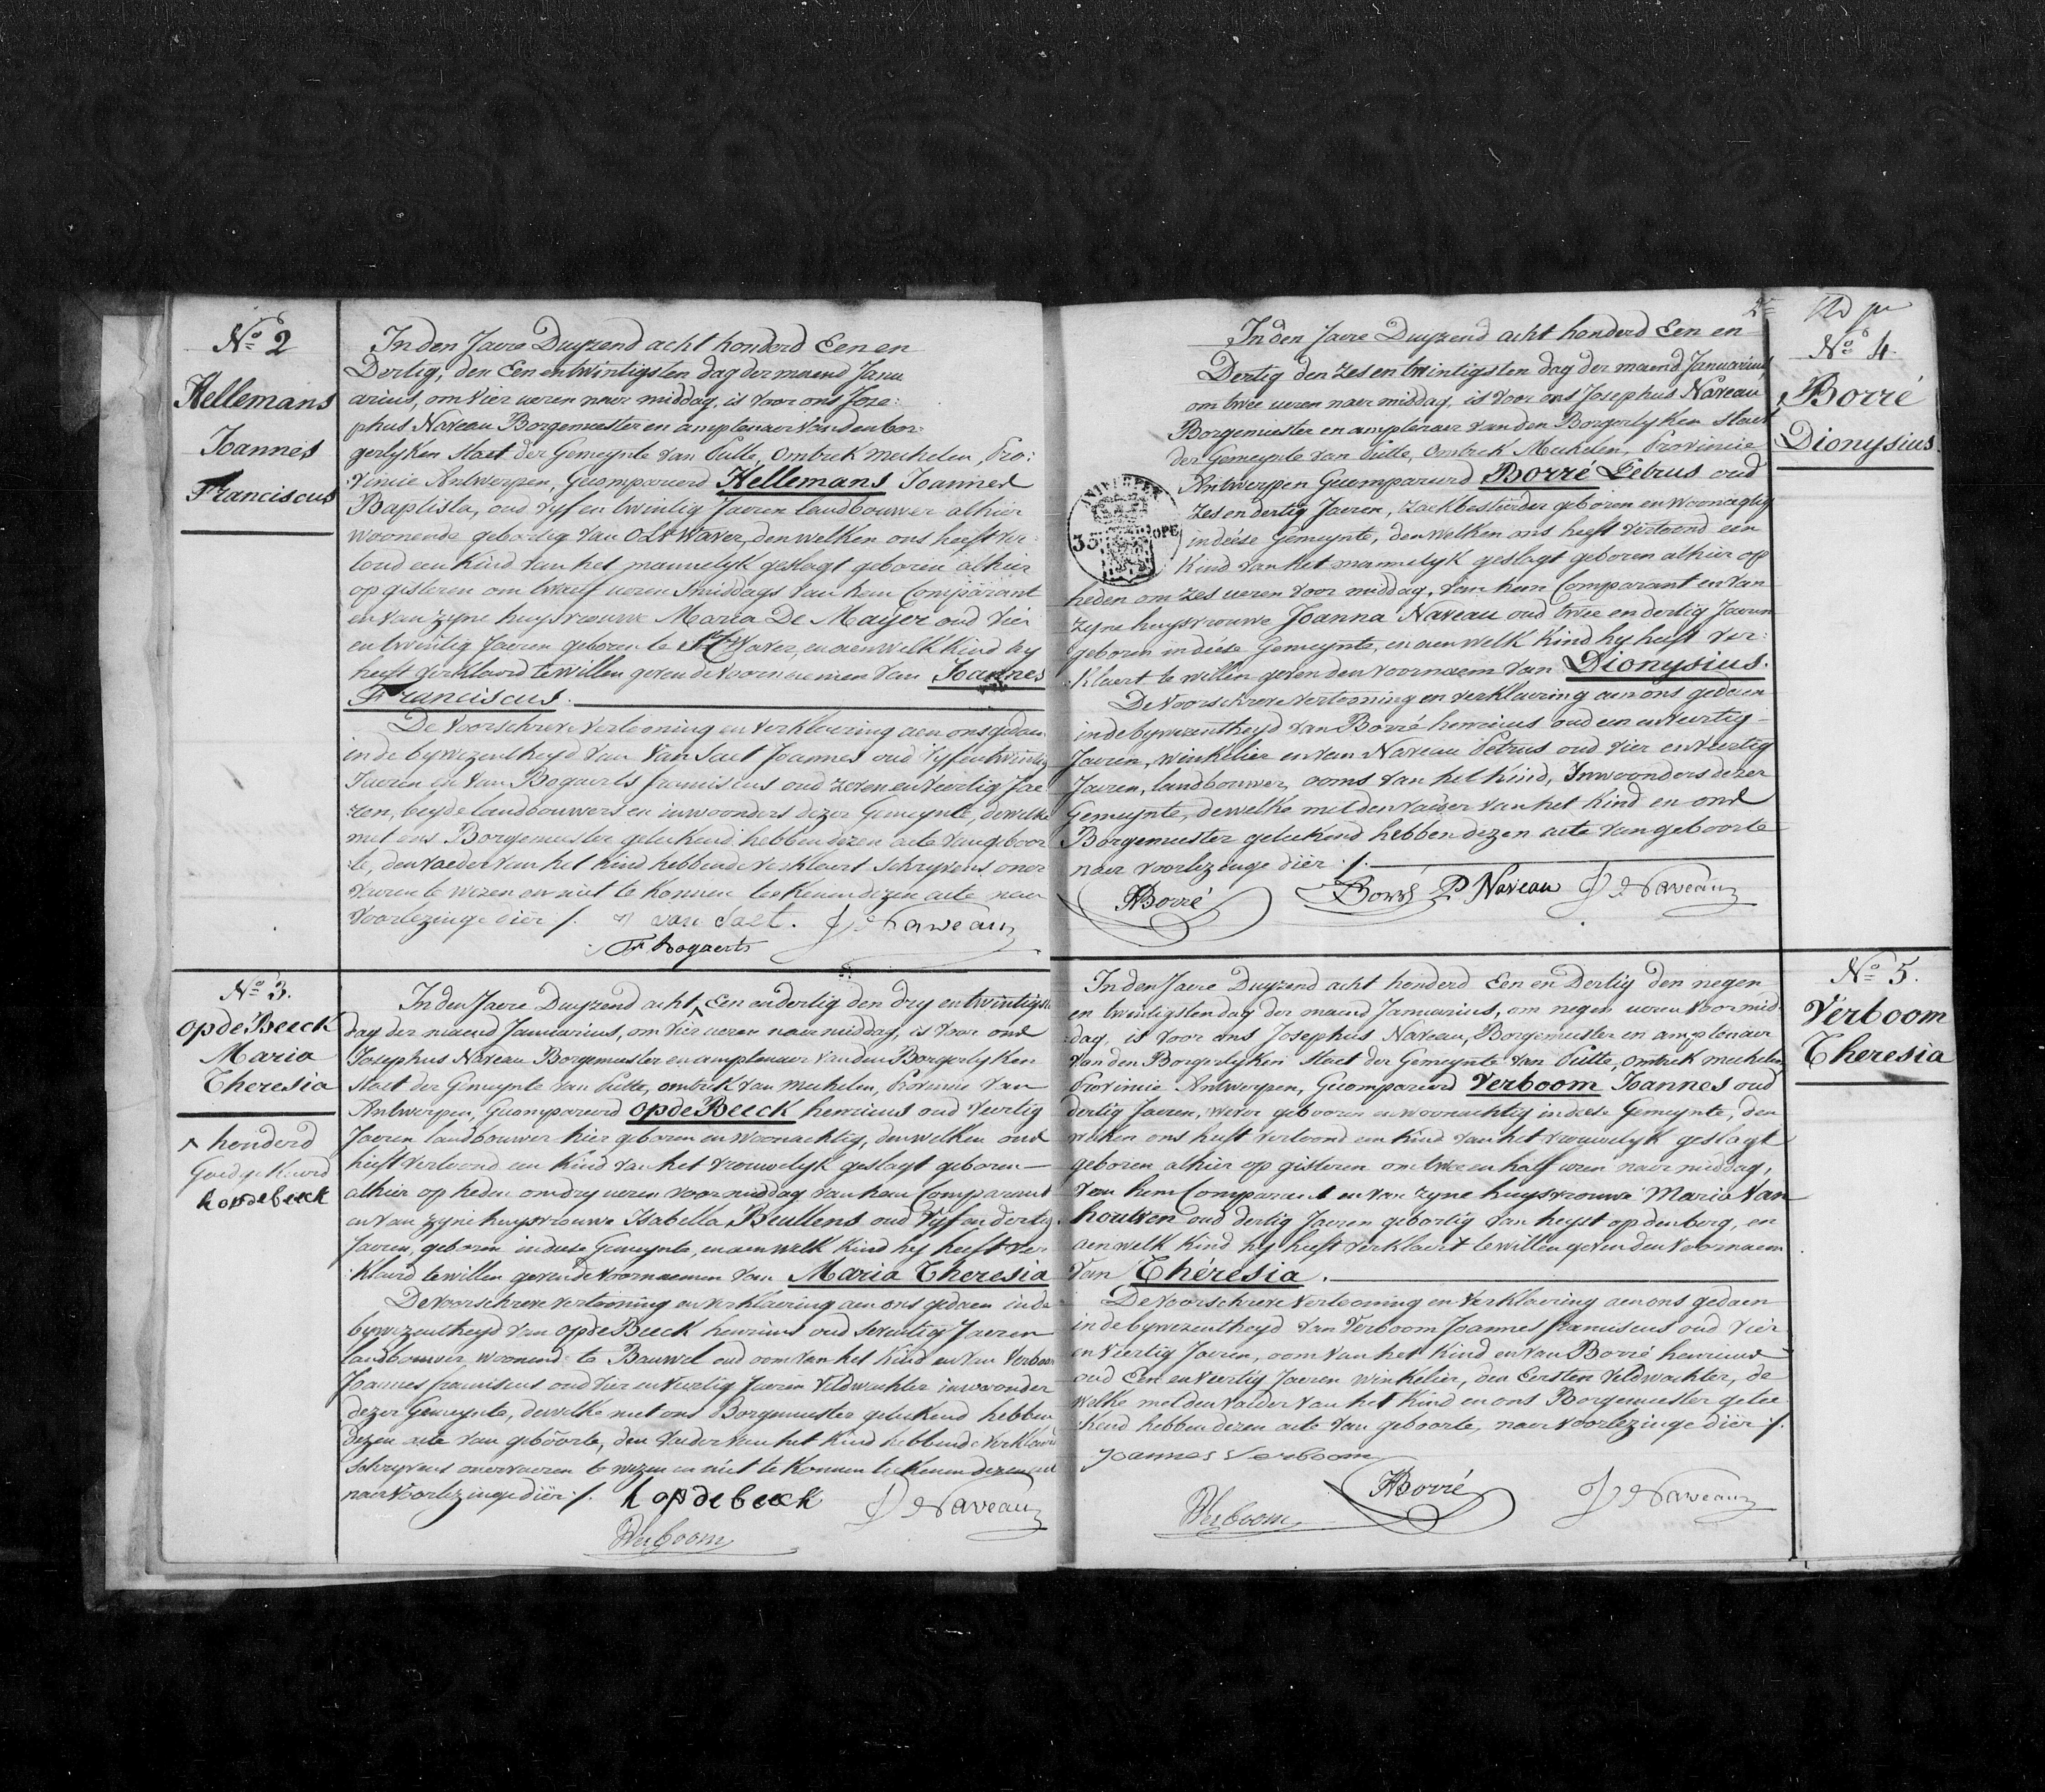 No 2
Hellemans
Joannes
Franciscus
In den Jaere Duyzend acht honderd Een en
Dertig, den Een en twintigsten dag der maend Janu
arius, om vier ueren naer middag, is voor ons Jose:
phus Naveau Borgemeester en amptenaer van den bor:
gerlyken staet der Gemeynte van Putte, omtrek mechelen, Pro:
vincie Antwerpen, Gecompareerd Hellemans Joannes
Baptista, oud vyf en twintig Jaeren landbouwer alhier
woonende gebortig van O L V Waver, den welken ons heeft ver:
toond een kind van het mannelyk geslagt geboren alhier
op gisteren om twaelf ueren smiddags van hem Comparant
en van zyne huysvrouwe Maria De Mayer oud vier
en twintig Jaeren geboren te Waver, en aen welk kind hy
heeft verklaerd te willen geven de voornaemen van Joannes
Franciscus.
De voorschreve vertooning en verklaering aen ons gedaen
in de bywezentheyd van Van Saet Joannes oud vyf en twintig
Jaeren en van Bogaerts franciscus oud zeven en veertig Jae
ren, beyde landbouwers en inwoonders dezer Gemeynte, dewelke
met ons Borgemeester geteekend hebben dezen acte van geboor
te, den vaeder van het kind hebbende verklaert schryvens oner
vaeren te wezen en niet te konnen teekenen dezen acte naer
voorlezinge dier ./. van Saet. J Naveau
Fr bogaerts
No 3.
op de Beeck
Maria
Theresia
^ honderd
Goedgekeurd
h opdebeeck
In den Jaere Duyzend acht ^ Een en dertig den dry en twintigsten
dag der maend Januarius, om vier ueren naer middag, is voor ons
Josephus Naveau Borgemeester en amptenaer van den Borgerlyken
staet der Gemeynte van Putte, omtrek van mechelen, Provincie van
Antwerpen, Gecompareerd op de Beeck henricus oud veertig
Jaeren landbouwer hier geboren en woonachtig, den welken ons
heeft vertoond een kind van het vrouwelyk geslagt geboren
alhier op heden om dry ueren voor middag van hem Comparant
en van zyne huysvrouwe Isabella Beullens oud vyf en dertig
Jaeren, geboren in deese Gemeynte, en aen welk kind hy heeft ver
klaerd te willen geven de voornaemen van Maria Theresia
De voorschreve vertooning en verklaering aen ons gedaen in de
bywezentheyd van op de Beeck henricus oud seventig Jaeren
landbouwer, woonend te Bauwel oud oom van het kind en van Verboom
Joannes franciscus oud vier en veertig Jaeren veldwachter inwoonder
dezer Gemeynte, dewelke met ons Borgemeester geteekend hebben
dezen acte van geboorte, den vaeder van het kind hebbende verklaerd
schryvens onervaeren te wezen en niet te konnen teekenen dezen acte
naer voorlezinge dier ./. h opdebeeck J Naveau
Verboom
No 4.
Borré
Dionysius.
In den Jaere Duyzend acht honderd Een en
Dertig den zes en twintigsten dag der maend Januarius,
om twee ueren naer middag, is voor ons Josephus Naveau
Borgemeester en amptenaer van den Borgerlyken staet
der Gemeynte van Putte, omtrek Mechelen, Provincie
Antwerpen Gecompareerd Borré Petrus oud
zes en dertig Jaeren, zaekbestierder geboren en woonagtig
in deese Gemeynte, den welken ons heeft vertoond een
kind van het mannelyk geslagt geboren alhier op
heden om zes ueren voor middag, van hem Comparant en van
zyne huysvrouwe Joanna Naveau oud twee en dertig Jaeren
geboren in deese Gemeynte, en aen welk kind hy heeft ver:
klaert te willen geven den voornaem van Dionysius.
De voorschreve vertooning en verklaering aen ons gedaen
in de bywezentheyd van Borré henricus oud een en veertig
Jaeren, winkelier en van Naveau Petrus oud vier en veertig
Jaeren, landbouwer, ooms van het kind, Inwoonders dezer
Gemeynte, dewelke met den vaeder van het kind en ons
Borgemeester geteekend hebben dezen acte van geboorte
naer voorlezinge dier ./.
Borré Borré P Naveau J Naveau
No 5.
Verboom
Theresia
In den Jaere Duyzend acht honderd Een en Dertig den negen
en twintigsten dag der maend Januarius, om negen ueren voor mid
dag, is voor ons Josephus Naveau, Borgemeester en amptenaer
van den Borgerlyken staet der Gemeynte van Putte, omtrek mechelen,
Provincie Antwerpen, Gecompareerd Verboom Joannes oud
dertig Jaeren, wever gebooren en woonachtig in deese Gemeynte, den
welken ons heeft vertoond een kind van het vrouwelyk geslagt
geboren alhier op gisteren om twee en half uren naer middag,
van hem Comparant en van zyne huysvrouwe Maria Van
houtven oud dertig Jaeren gebortig van heyst op den berg, en
aen welk kind hy heeft verklaert te willen geven den voornaem
van Thérésia.
De voorschreve vertooning en verklaering aen ons gedaen
in de bywezentheyd van Verboom Joannes franciscus oud vier
en veertig Jaeren, oom van het kind en van Borré henricus
oud Een en veertig Jaeren winkelier, den Eersten veldwachter, de
welke met den vaeder van het kind en ons Borgemeester getee
kend hebben dezen acte van geboorte, naer voorlezinge dier ./.
Joannes Verboom
Borré J Naveau
Verboom